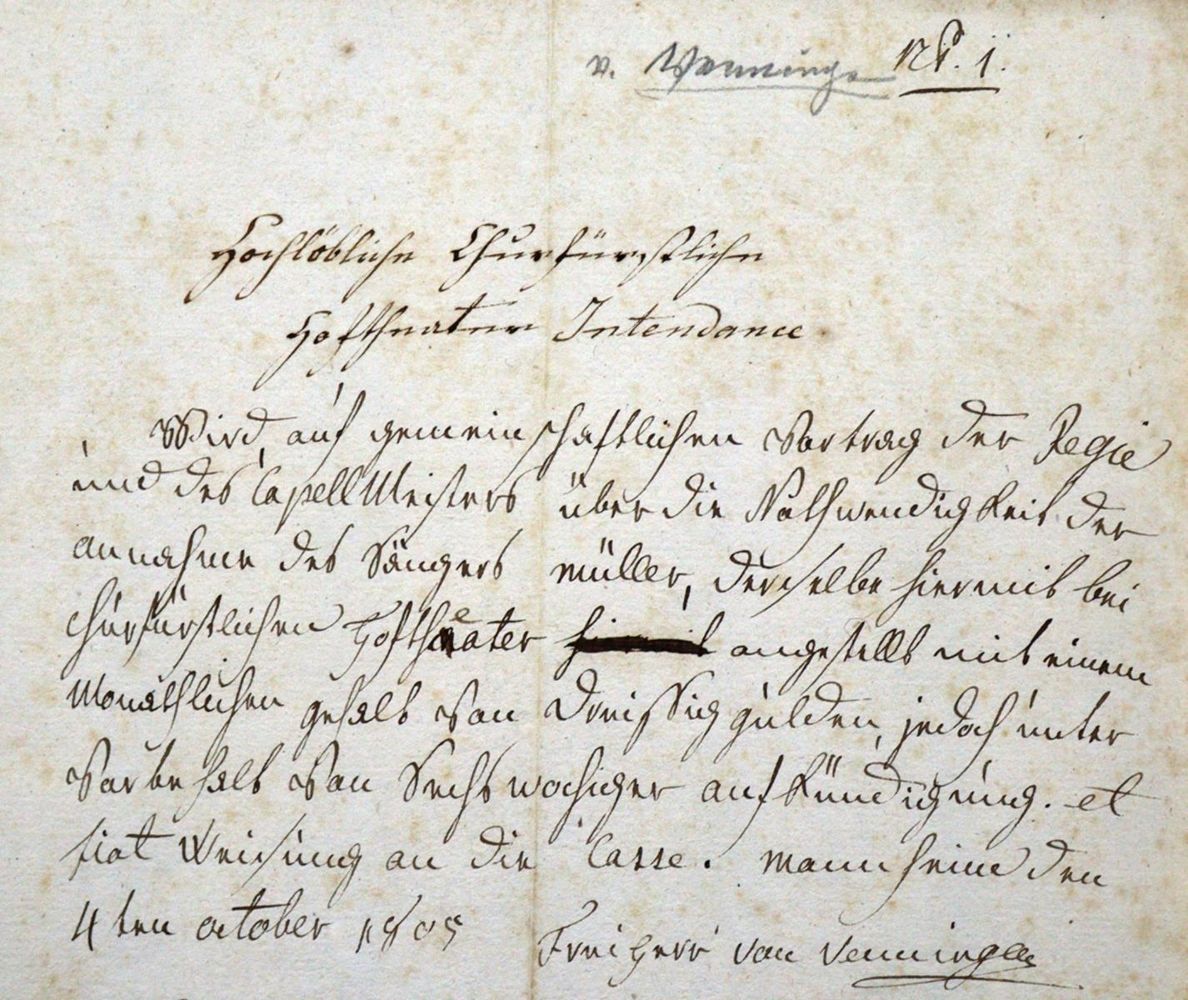 v. Venningen Nr. 1.
Hochlöbliche Churfürstliche
Hoftheater Intendance
Wird auf gemeinschaftlichen Vortrag der Regie
und des CapellMeisters über die Nothwendigkeit der
annahme des Sängers müller, derselbe hiermit bei
churfürstlichen Hoftheater angestellt mit einem
Monathlichen gehalt von Dreissig gulden, jedoch unter
Vorbehalt von Sechswochiger aufkündigung. et
fiat Weisung an die Casse. Mannheim den
4ten october 1805
Freiherr von Venningen